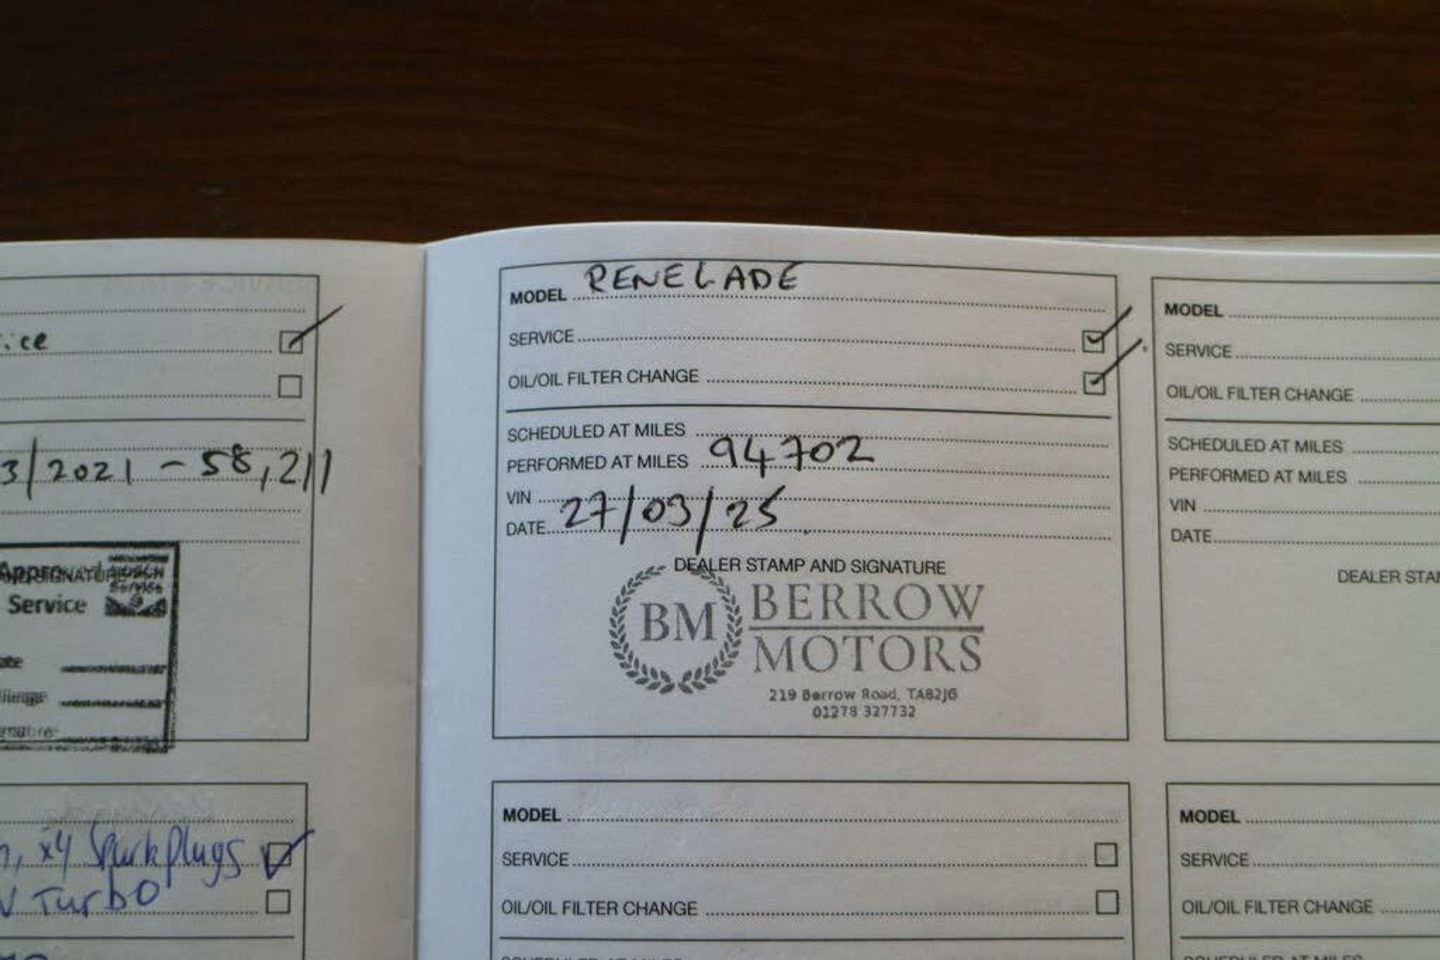 ice
3/2021 - 58,211
Approved BOSCH
Service
Service
x4 Spark plugs
Turbo
MODEL RENEGADE
SERVICE
OIL/OIL FILTER CHANGE
SCHEDULED AT MILES
PERFORMED AT MILES 94702
VIN
DATE 27/03/25
DEALER STAMP AND SIGNATURE
BM BERROW
MOTORS
219 Berrow Road, TA82JG
01278 327732
MODEL
SERVICE
OIL/OIL FILTER CHANGE
SCHEDULED AT MILES
MODEL
SERVICE
OIL/OIL FILTER CHANGE
SCHEDULED AT MILES
PERFORMED AT MILES
VIN
DATE
DEALER STAM
MODEL
SERVICE
OIL/OIL FILTER CHANGE
SCHEDULED AT MILES